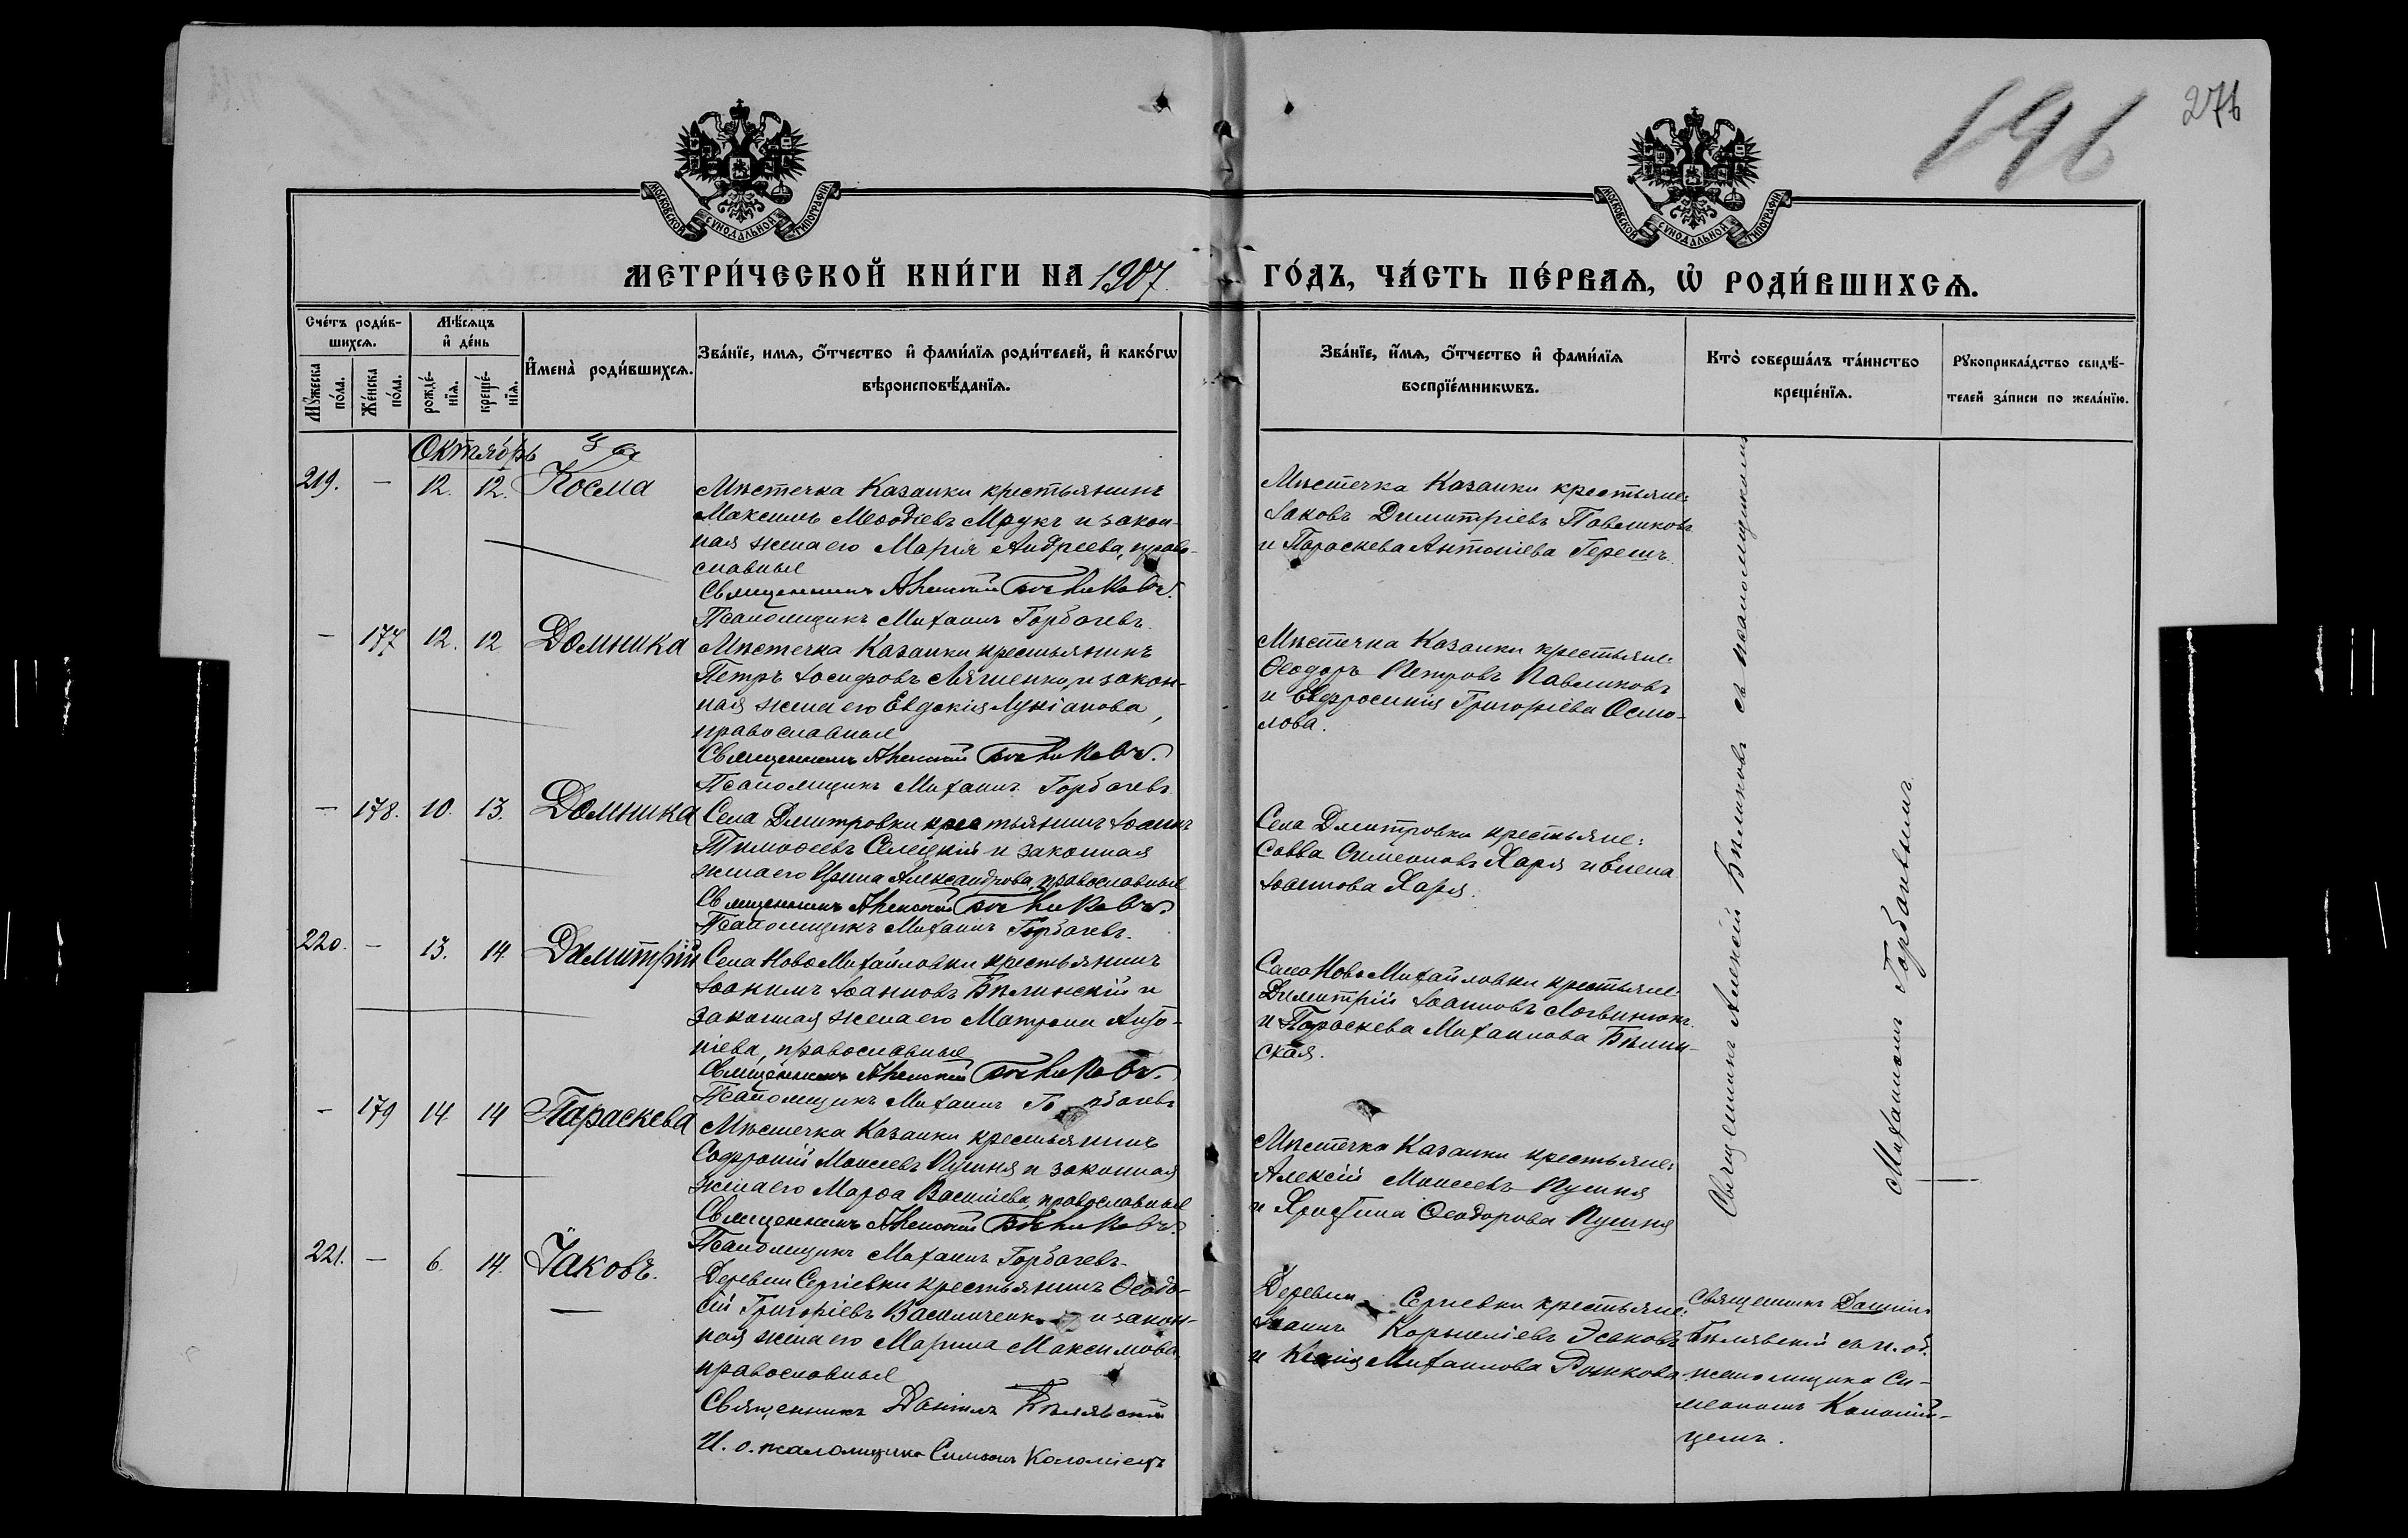 196
276
МОСКОВСКОЙ СѴНОДАЛЬНОЙ ТИПОГРАФІИ
МОСКОВСКОЙ СѴНОДАЛЬНОЙ ТИПОГРАФІИ
МЕТРИ́ЧЕСКОЙ КНИ́ГИ НА 1907 ГО́ДЪ, ЧА́СТЬ ПЕ́РВАѦ, Ѡ҆ РОДИ́ВШИХСѦ.
Сче́тъ роди́в-
шихсѧ.
Мꙋ́жеска
по́ла.
Же́нска
по́ла.
Мѣ́сѧцъ
и҆ де́нь
рожде́-
нїѧ.
креще́-
нїѧ.
И҆мена̀ роди́вшихсѧ.
Зва́нїе, имѧ, о҆́тчество и҆ фами́лїѧ роди́телей, и҆ како́гѡ
вѣроисповѣ́данїѧ.
Зва́нїе, и҆́мѧ, о҆́тчество и҆ фами́лїѧ
воспрїе́мникѡвъ.
Кто̀ соверша́лъ та́инство
креще́нїѧ.
Рꙋкоприкла́дство свидѣ́-
телей за́писи по жела́нїю.
Октябрь
219. — 12. 12. Косма
Мѣстечка Казанки крестьянинъ
Максимъ Меѳодіевъ Мрукъ и закон-
ная жена его Марія Андреева, право-
славные
Священникъ Алексій Бѣликовъ.
Псаломщикъ Михаилъ Горбачевъ.
Мѣстечка Казанки крестьяне:
Іаковъ Димитріевъ Павликовъ
и Параскева Антоніева Герешъ.
— 177 12. 12 Домника
Мѣстечка Казанки крестьянинъ
Петръ Іосифовъ Ляшенко, и закон-
ная жена его Евдокія Лукіанова,
православные
Священникъ Алексій Бѣликовъ.
Псаломщикъ Михаилъ Горбачевъ
Мѣстечка Казанки крестьяне:
Ѳеодоръ Петровъ Павликовъ
и Евфросинія Григоріева Осмо-
лова.
— 178. 10. 13. Домника
Села Дмитровки крестьянинъ Іоаннъ
Тимоѳеевъ Селецкій и законная
жена его Ирина Александрова, православные
Священникъ Алексій Бѣликовъ.
Псаломщикъ Михаилъ Горбачевъ.
Села Дмитровки крестьяне:
Савва Симеоновъ Харя и Елена
Іоаннова Харя.
220. — 13. 14 Димитрій
Села НовоМихайловки крестьянинъ
Іоакимъ Іоанновъ Бѣлинскій и
законная жена его Матрона Анто-
ніева, православные
Священникъ Алексій Бѣликовъ.
Псаломщикъ Михаилъ Горбачевъ
Села НовоМихайловки крестьяне:
Димитрій Іоанновъ Логвинюкъ
и Параскева Михаилова Бѣлин-
ская.
— 179 14 14 Параскева
Мѣстечка Казанки крестьянинъ
Софроній Моисеевъ Пушня и законная
жена его Марѳа Василіева, православные
Священникъ Алексій Бѣликовъ.
Псаломщикъ Михаилъ Горбачевъ.
Мѣстечка Казанки крестьяне:
Алексій Моисеевъ Пушня
и Христина Ѳеодорова Пушня
221. — 6. 14. Іаковъ.
Деревни Сергіевки крестьянинъ Ѳеодо-
сій Григоріевъ Василиченко и закон-
ная жена его Марина Максимова,
православные
Священникъ Даніилъ Бѣлявскій
И. о. псаломщика Симеонъ Коломіецъ
Деревни Сергіевки крестьяне:
Іоаннъ Корниліевъ Эсаковъ
и Михаилова Рожкова.
Священникъ Алексій Бѣликовъ съ псаломщикомъ
Михаиломъ Горбачевымъ
Священникъ Даніилъ
Бѣлявскій съ и. об.
псаломщика Си-
меономъ Коломій-
цемъ.